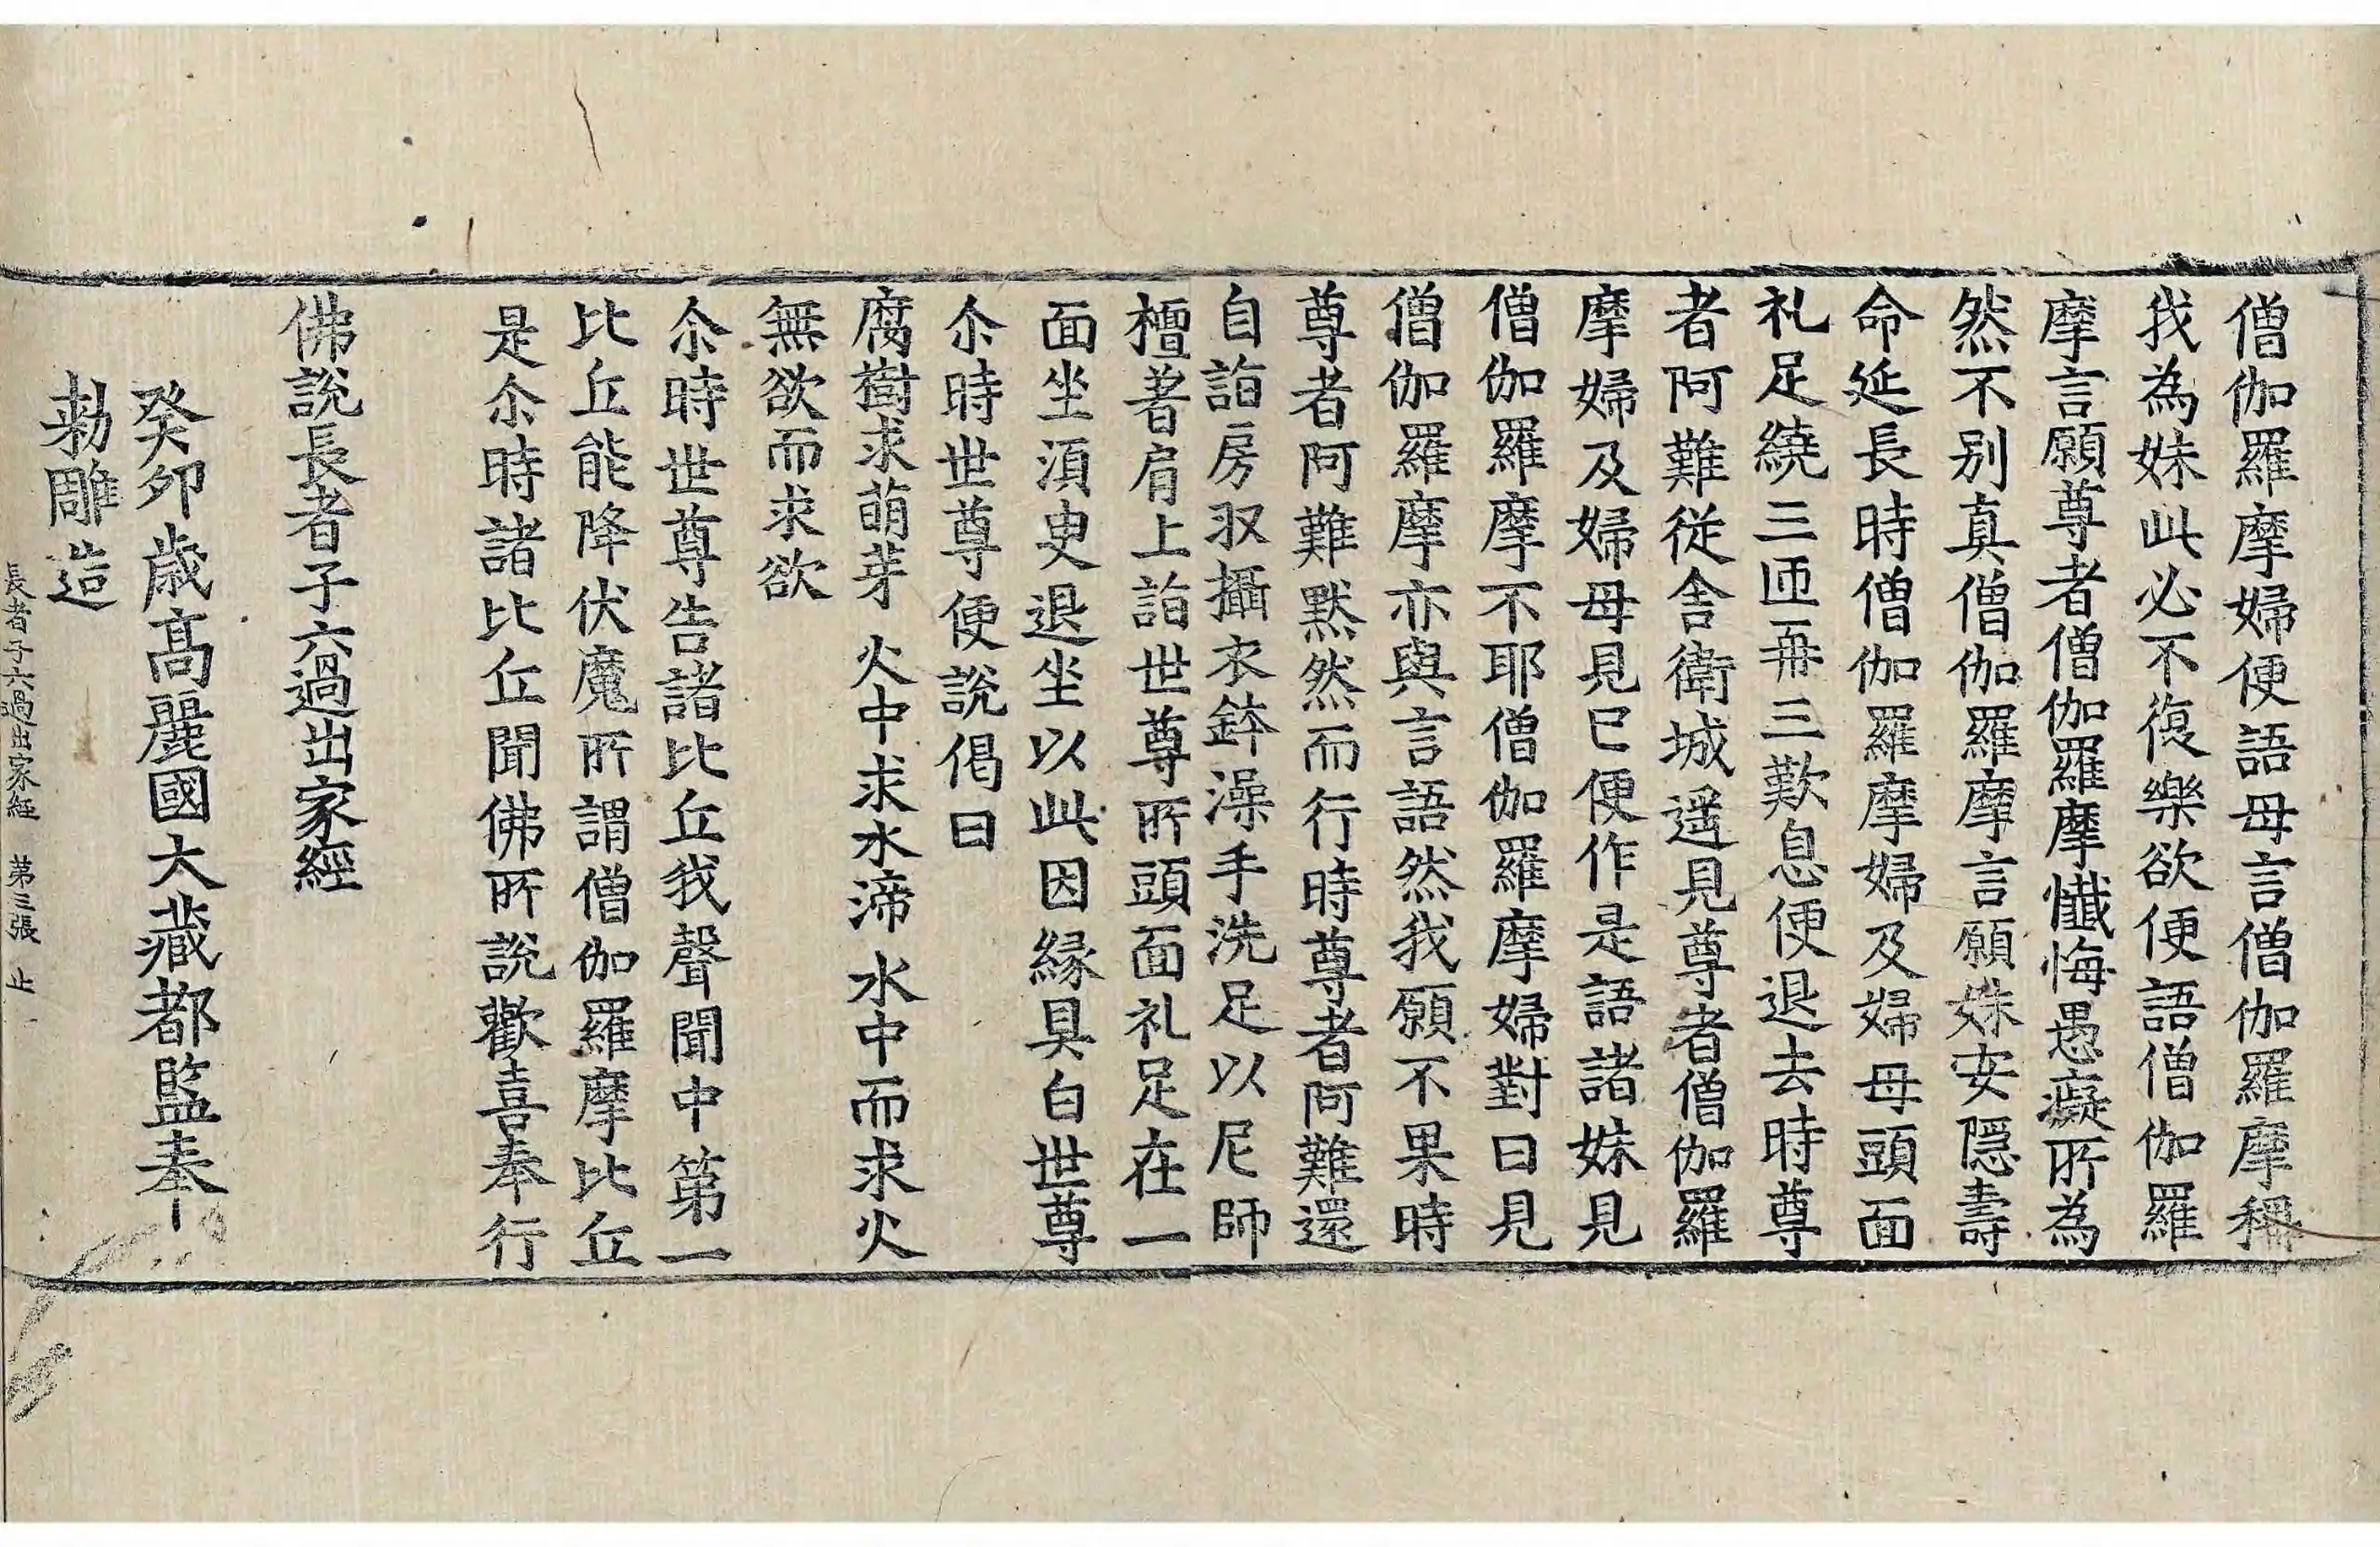 僧伽羅摩婦便語母言僧伽羅摩稱
我為妹此必不復樂欲便語僧伽羅
摩言願尊者僧伽羅摩懺悔愚癡所為
然不别真僧伽羅摩言願妹安隱壽
命延長時僧伽羅摩婦及婦母頭面
礼足繞三匝再三歎息便退去時尊
者阿難從舎衛城遥見尊者僧伽羅
摩婦及婦母見已便作是語諸妹見
僧伽羅摩不耶僧伽羅摩婦對曰見
僧伽羅摩亦與言語然我願不果時
尊者阿難黙然而行時尊者阿難還
自詣房収攝衣鉢澡手洗足以尼師
檀著肩上詣世尊所頭面礼足在一
面坐須叟退坐以此因縁具白世尊
尒時世尊便說偈曰
腐樹求萌芽　火中求水渧　水中而求火
無欲而求欲
尒時世尊告諸比丘我聲聞中第一
比丘能降伏魔所謂僧伽羅摩比丘
是尒時諸比丘聞佛所說歡喜奉行
佛說長者子六過出家經
癸卯歲髙麗國大藏都監奉
勑雕造
長者子六過出家經　第三張　止